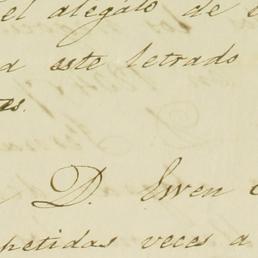 el alegáto de
a este letrado
es.
D. Ewen
petidas veces a